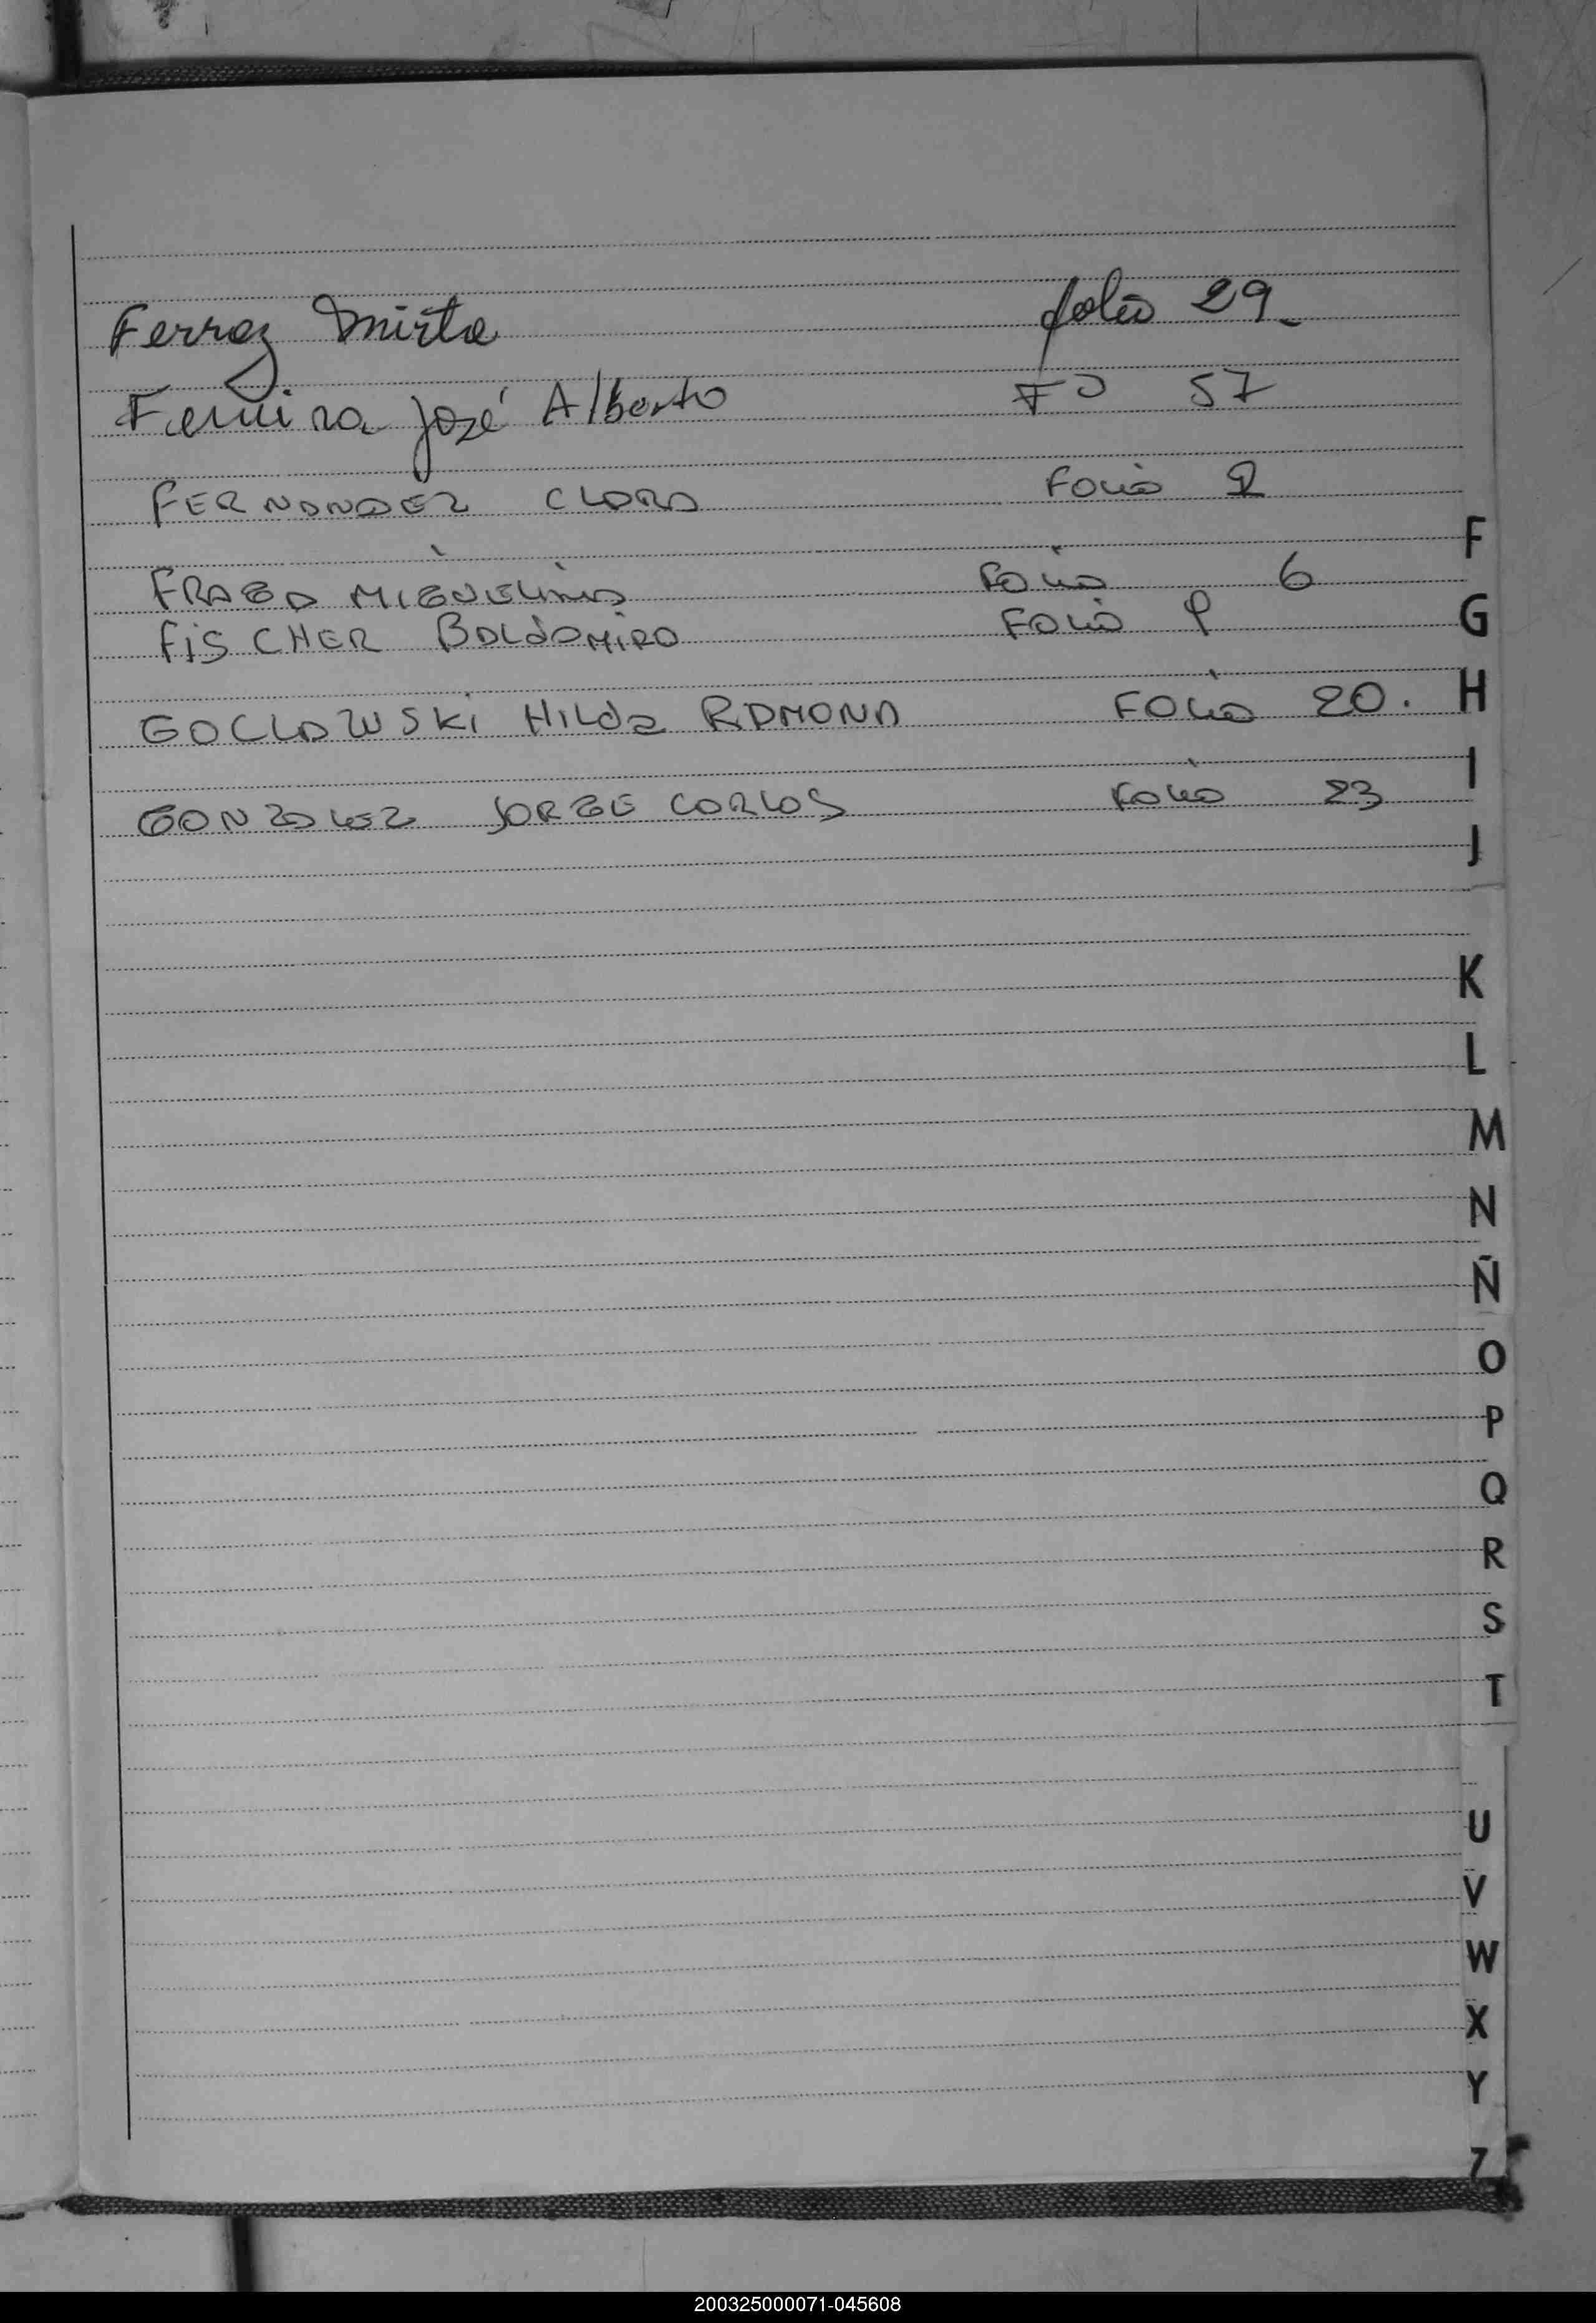 Ferraz Mirta folio 29.
Ferreira José Alberto Fº 57
FERNANDEZ CLARA FOLIO 2
FRAGA MIGUELINA FOLIO 6
FISCHER BALDOMIRO FOLIO 9
GOCLAWSKI HILda RAMONA FOLIO 20.
GONZALEZ JORGE CARLOS FOLIO 23
F
G
H
I
J
K
L
M
N
Ñ
O
P
Q
R
S
T
U
V
W
X
Y
Z
200325000071-045608